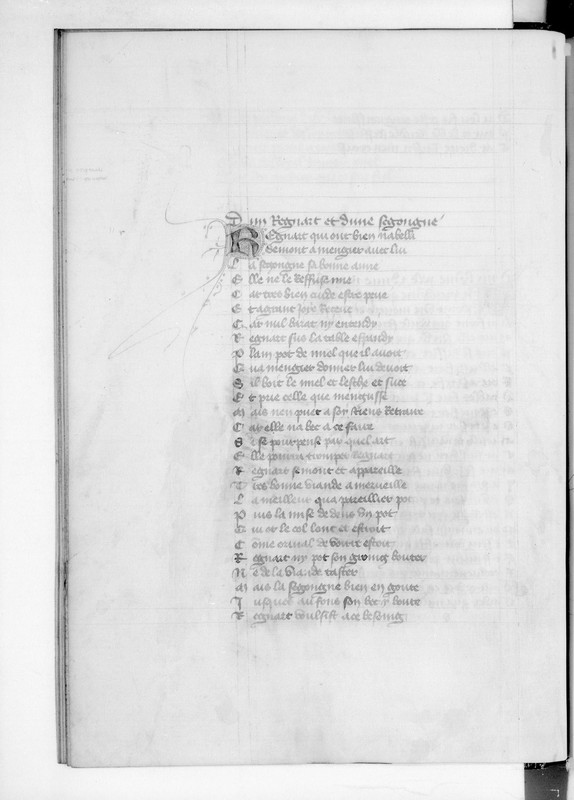 Dun Regnart et dune segongne
REgnart qui ont bien nabelli
demont a mengier avec lui
La segongne sa bonne amie
Elle ne le Reffuse mie
Car tres bien cuide estre prive
Et a grant Joye Receue
Car nul barat ny entendy
Regnart sus la table espandy
Plain pot de miel que il avoit
Qua mengier donner lui devoit
Sil boit le miel et lesche et suce
Et prie celle que mengusse
Mais nen puet a soy Riens Retraire
Car elle na bec a ce faire
Si se pourpense par quel art
Elle pourra tromper Regnart
Regnart semont et appareille
Tres bonne viande a merveille
La meilleur qua pareillier pot
Puis la mise dedens un pot
Qui ot le col lonc et estroit
Come orinal de voirre estoit
Regnart ny pot son groing bouter
Ne de la viande taster
Mais la segongne bien en goute
Jusques au fons son bec y boute
Regnart voulsist a ce besoing